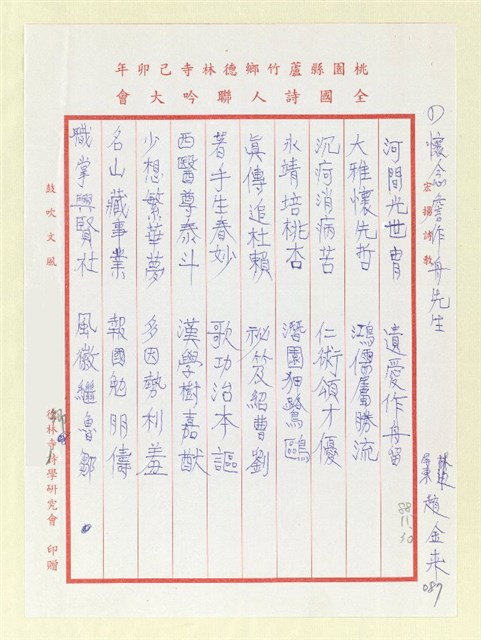 桃園縣蘆竹鄉德林寺己卯年
全國詩人聯吟大會
宏揚詩教
懷念詹作舟先生
屏東 趙金来 087
88.11.30
河間光世胄 遺愛作舟留
大雅懷先哲 鴻儒屬勝流
沉疴消病苦 仁術領才優
永靖培桃杏 潛園狎鷺鷗
眞傳追杜賴 祕笈紹曹劉
著手生春妙 歌功治本謳
西醫尊泰斗 漢學樹嘉猷
少想繁華夢 多因勢利羞
名山藏事業 報國勉朋儔
職掌興賢社 風徽繼魯鄒
鼓吹文風
德林寺詩學研究會 印贈